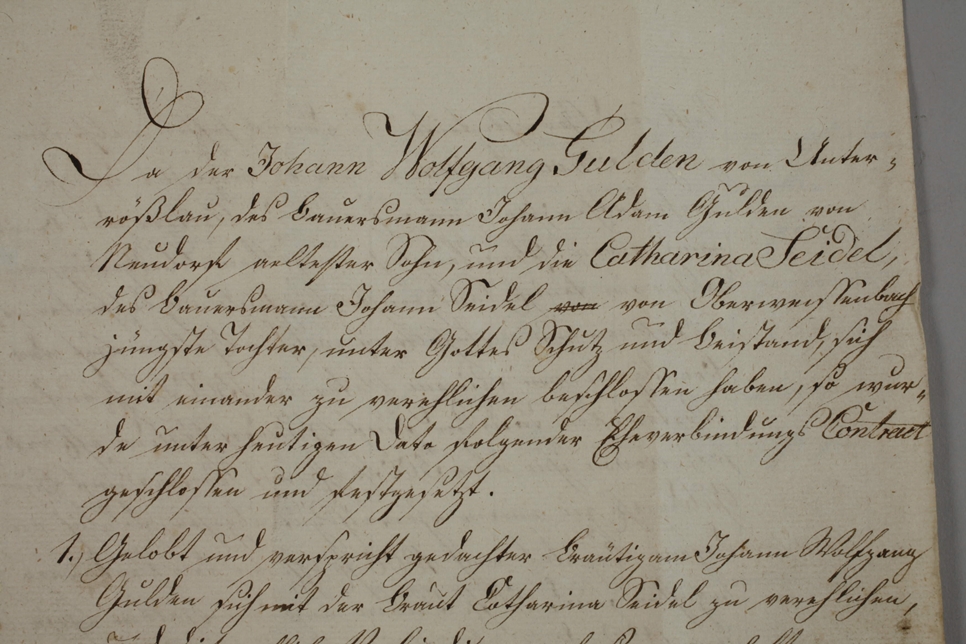 Da der Johann Wolfgang Gulden von Unter-
rößlau, des Bauersmann Johann Adam Gulden von
Neudorf aeltester Sohn, und die Catharina Seidel,
des Bauersmann Johann Seidel von von Oberweissenbach
jüngste Tochter, unter Gottes Schutz und Beistand, sich
mit einander zu verehlichen beschlossen haben, so wur-
de unter heutigen Dato folgender Eheverbindungs Contract
geschlossen und festgesetzt.
1.) Gelobt und verspricht gedachter Bräutigam Johann Wolfgang
Gulden sich mit der Braut Catharina Seidel zu verehlichen,